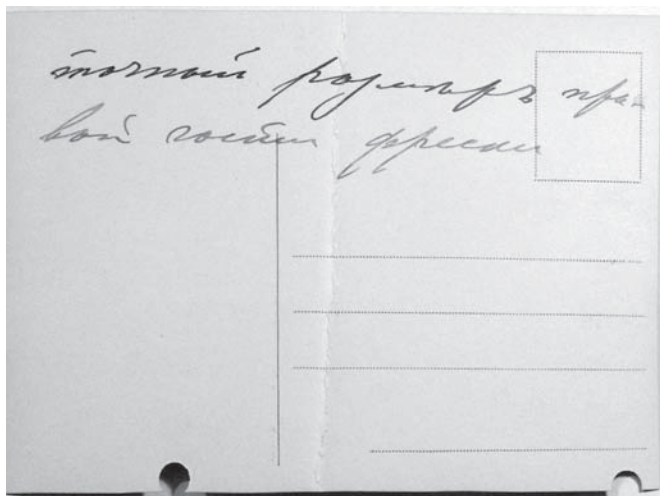 точный размѣръ пра-
вой части фрески